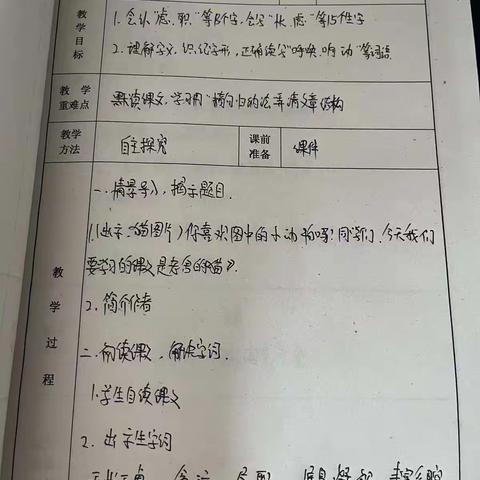 教学目标
1. 会认"虑、职"等8个字,会写"忧、虑"等15个生字
2. 理解字义,识记字形,正确读写"呼唤、响动"等词语
教学重难点
默读课文,学习用 归纳法弄清文章结构
教学方法
自主探究
课前准备
课件
教学过程
一、情景导入,揭示题目.
1.(出示猫图片)你喜欢图中的小动物吗?同学们,今天我们
要学习的课文是老舍的《猫》.
2、简介作者
二、初读课文,解决字词.
1.学生自读课文
2. 出示生字词